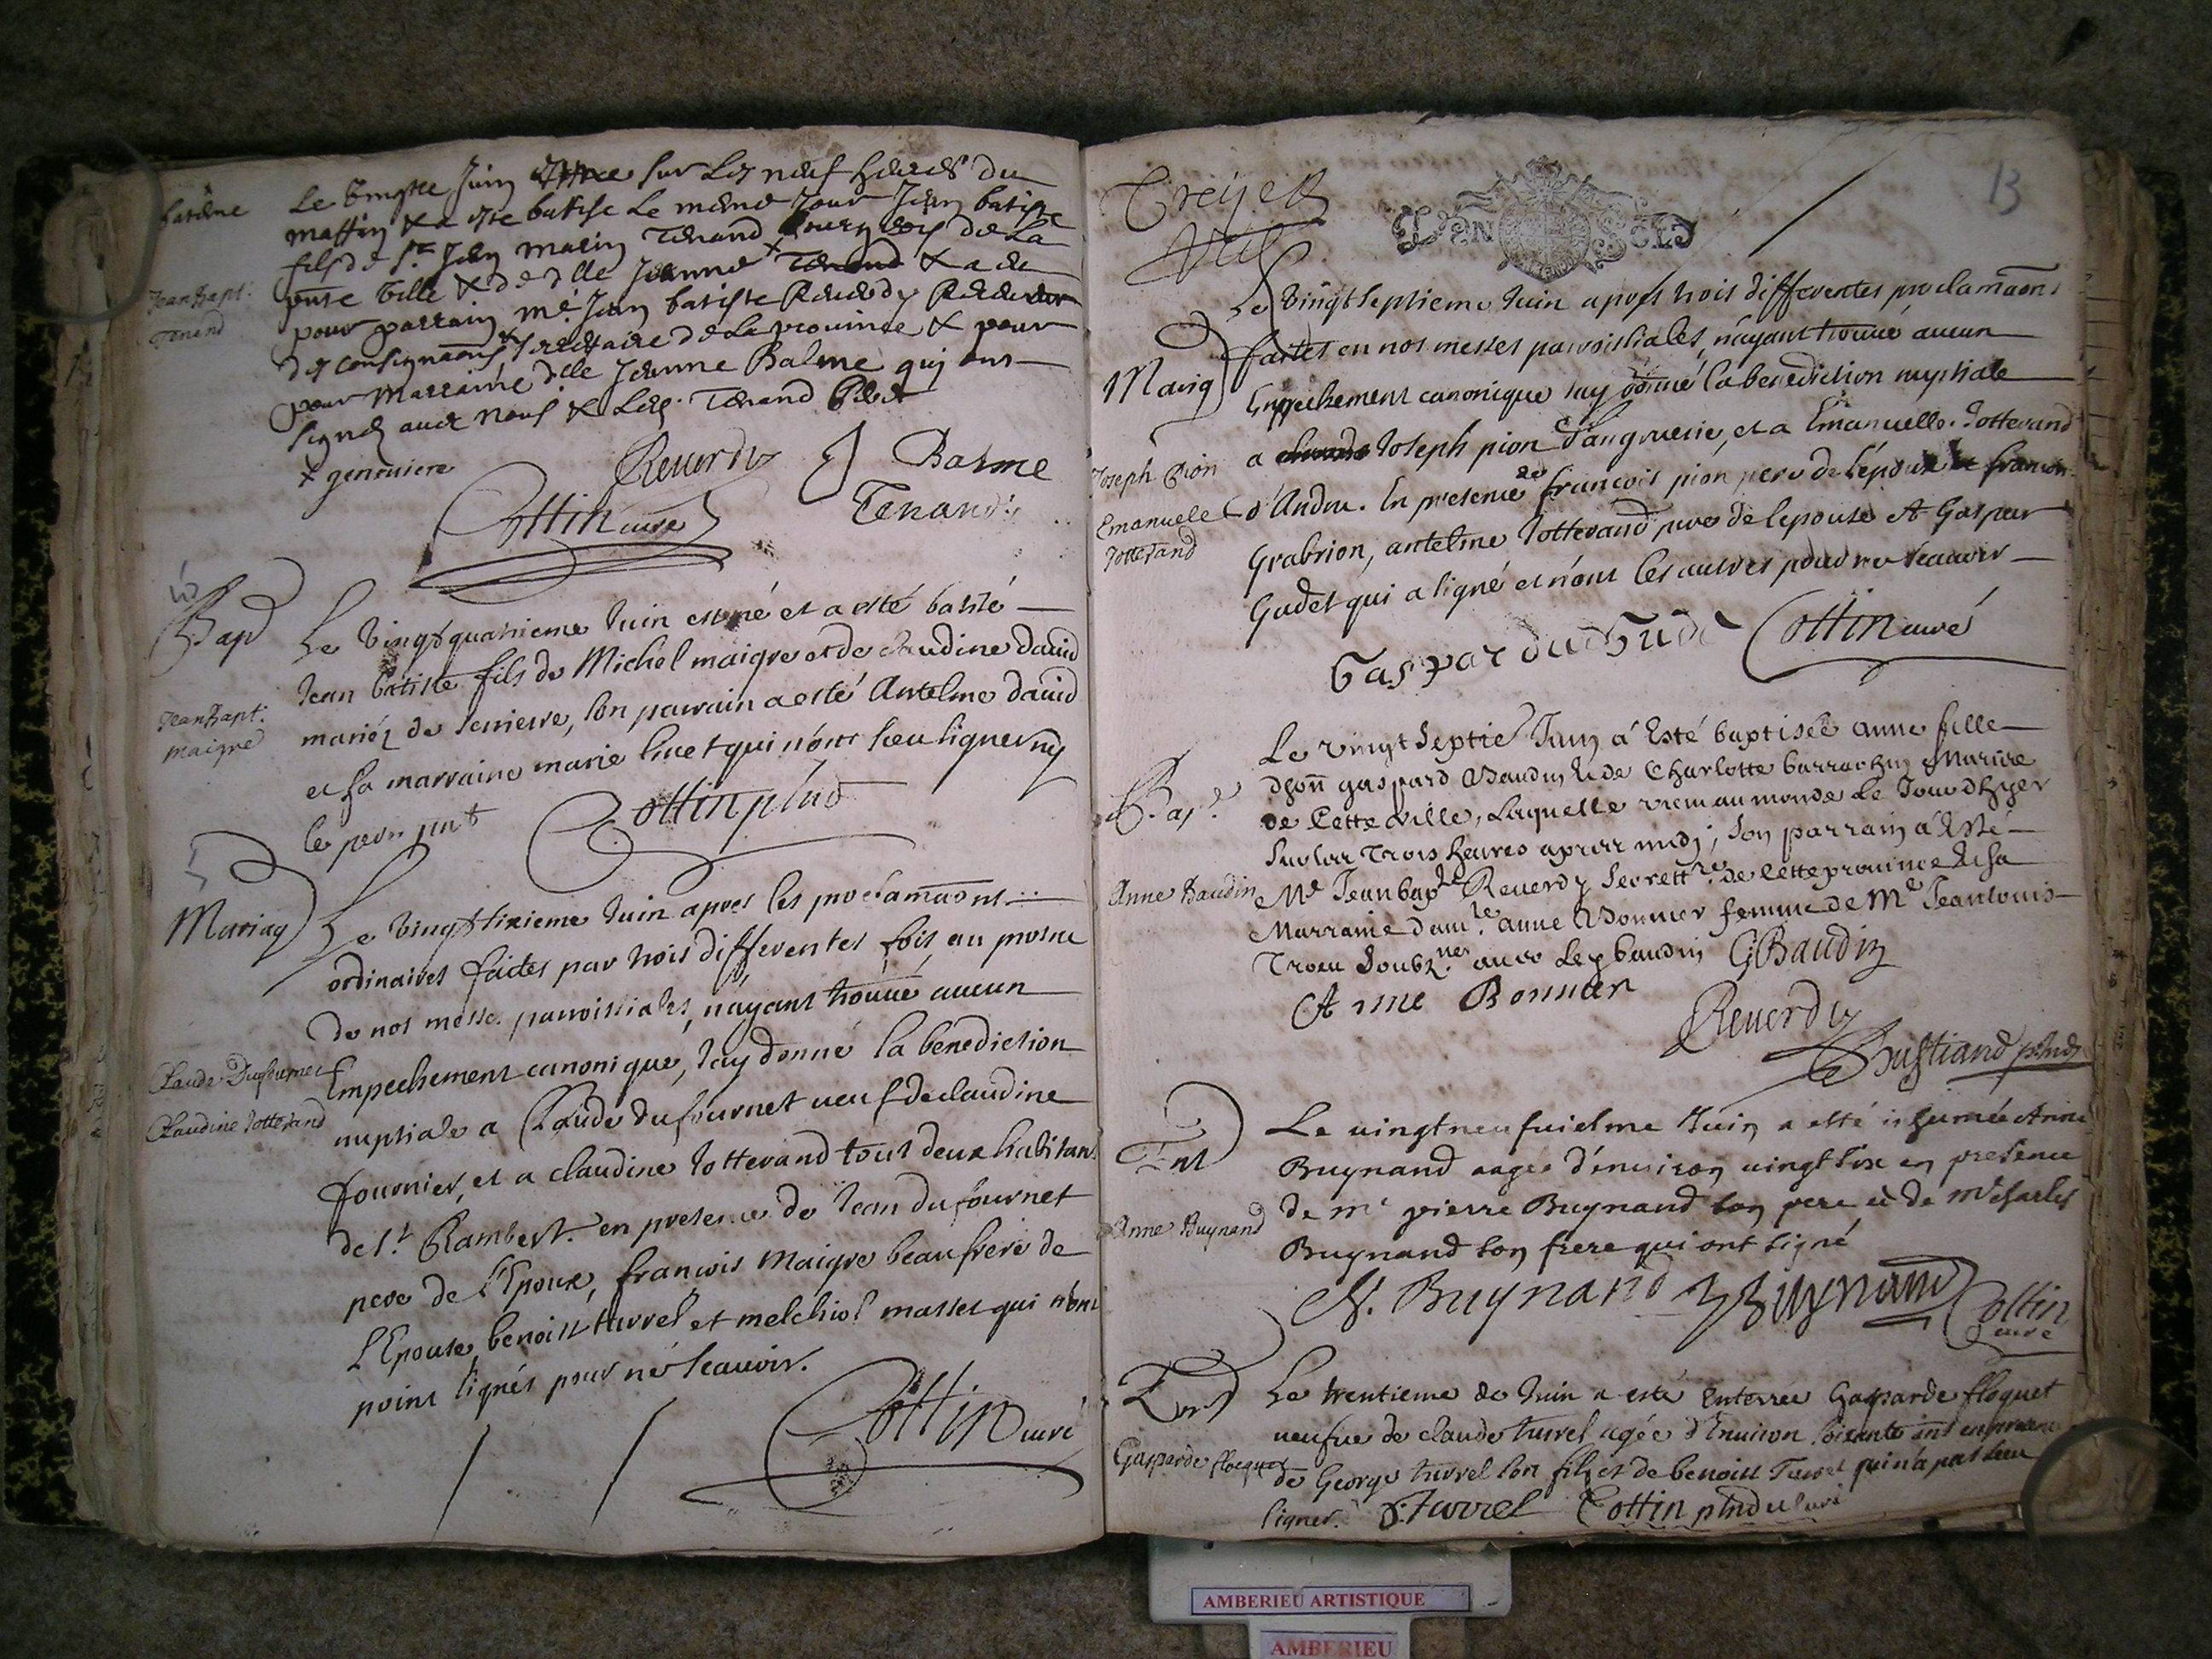 bateme
Le vingtte Juin sur Les neuf heures du
mattin & a este batise Le meme Jour Jean batiste
fils de sr Jean marin Tenand bourgeois de La
pnte ville & de dlle Jeanne Tenand & a eu
Jean Bapt.
Tenend
pour parrain me Jean batiste Reverdy Receveur
des consignaons & secretaire de La province & pour
pour marraine dlle Jeanne Balme qui ont
signé avec nous & Led. Tenand Pere
x geneviere
Reverdy J Balme
Cottin curé Tenand
Bap
Le vingtquatrieme Juin est né et a esté batisé
Jean batiste fils de Michel maigre et de claudine david
Jean Bapt.
maigre
mariéz de serrierre, son parrain a esté Antelme david
et sa marraine marie qui n'ont sceu signer ny
le pere pnt Cottin
Mariag
Le vingtsixieme Juin apres les proclamaons
ordinaires faites par trois differentes fois au prosne
de nos messes parroissiales, n'ayant trouvé aucun
Claude Dufournet
Empechement canonique, J'ay donné la benediction
Claudine Jotterand
nuptiale a Claude dufournet veuf de claudine
fournier, et a claudine Jotterand tout deux habitans
de St Rambert. en presence de Jean dufournet
pere de l'Epoux, francois Maigre beaufrere de
l'Epouse, benoist turrel et melchiol masset qui n'ont
point signés pour ne scavoir.
Cottin curé
13
Le vingtseptieme Juin aprés trois differentes proclamaons
Mariag
faites en nos messes parroissiales, n'ayant trouvé aucun
Empechement canonique J'ay donné la benediction nuptiale
Joseph Pion
a Joseph pion et a Emanuelle Jotterand
Emanuele
Jotterand
d'Andru. En presence de francois pion pere de l'époux
Grabrion, antelme Jotterand pere de lepouse et Gaspar
Gudet qui a signé et n'ont les autres pour ne scavoir
Gaspar du Gudet Cottin curé
Bap.
Le vingt septie Juin a Esté baptisée anne fille
dhon gaspard Baudin & de Charlotte barrachin Mariée
de Cette ville, Laquelle vient au monde Le Jour d'hyer
Sur les Trois heures apres midj; son parrain a Esté
Anne Baudin
Me Jean bapte Reverdy Secrettre de Cette province & sa
Marraine damlle anne Bonnier femme de Me Jeanlouis
Trocu soubznes avec Led baudin G Baudin
Anne Bonnier
Reverdy
Bustiand
Ent
Le vingtneufviesme Juin a esté inhumée Anne
Buynand aagée d'environ vingt six en presence
Anne Buynand
de me pierre Buynand son pere et de me charles
Buynand son frere qui ont signé
Buynand Buynand Cottin
curé
Ent
Le trentieme de Juin a esté Enterrée Gasparde floquet
veufve de claude turrel agée d'Environ soixante ans en presence
Gasparde floquet
de George turrel son fils et de benoist Turrel qui n'a pas sceu
signer. Turrel Cottin
AMBERIEU ARTISTIQUE
AMBERIEU